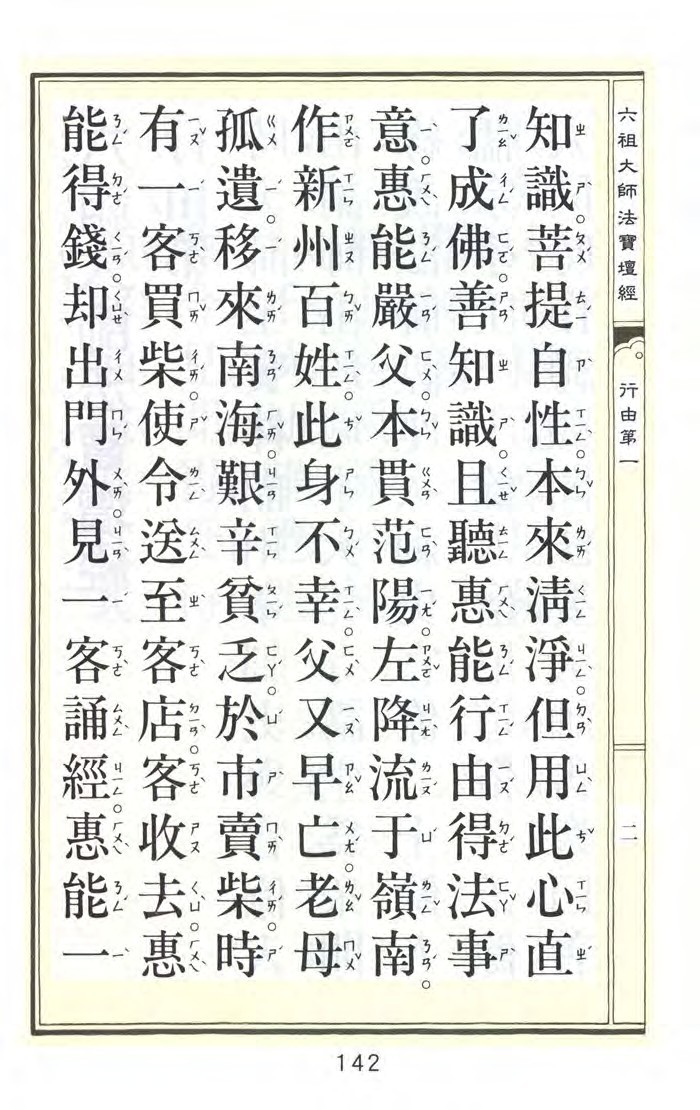 六祖大師法寶壇經
行由第一
二
知識。菩提自性。本來清淨。但用此心。直
了成佛。善知識。且聽惠能行由得法事
意。惠能嚴父。本貫范陽。左降流于嶺南。
作新州百姓。此身不幸。父又早亡。老母
孤遺。移來南海。艱辛貧乏。於市賣柴。時
有一客買柴。使令送至客店。客收去。惠
能得錢。却出門外。見一客誦經。惠能一
142